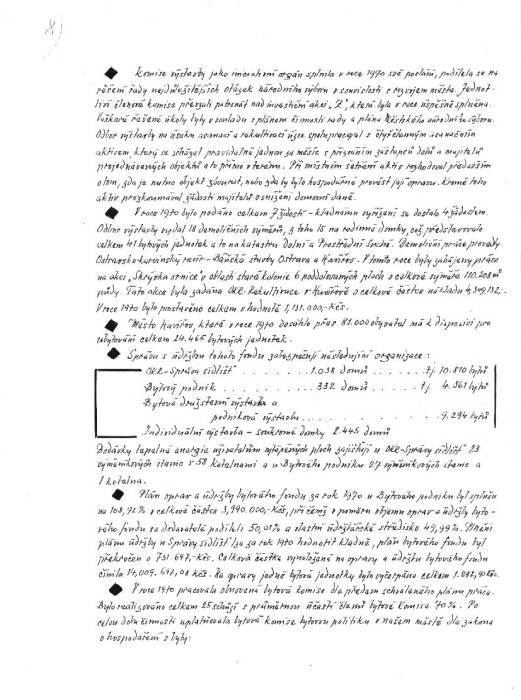 ◆ Komise výstavby jako iniciativní orgán splnila v roce 1970 své poslání, podílela se na
řešení řady nejdůležitějších otázek národního výboru v souvislosti s rozvojem města. Jednot-
liví členové komise převzali patronát nad investiční akcí „Z“, která byla v roce úspěšně splněna.
Veškeré řešené úkoly byly v souladu s plánem činnosti rady a pléna Městského národního výboru.
Odbor výstavby na úseku asanací a rekultivací úzce spolupracoval s čtyřčlenným asanačním
aktivem, který se scházel pravidelně jednou za měsíc s přizváním zástupců dolů a majitelů
projednávaných objektů a to přímo v terénu. Při místním šetření aktiv rozhodoval především
o tom, zda je nutno objekt zbourat, nebo zda by bylo hospodárné provést její opravu. Kromě toho
aktiv prozkoumával žádosti majitelů o snížení domovní daně.
◆ V roce 1970 bylo podáno celkem 7 žádostí - kladného vyřízení se dostalo 4 žádostem.
Odbor výstavby vydal 18 demoličních výměrů, z toho 15 na rodinné domky, což představovalo
celkem 41 bytových jednotek a to na katastru Dolní a Prostřední Suché. Demoliční práce prováděly
Ostravsko-karvinský revír - Báňské stavby Ostrava a Havířov. V tomto roce byly zahájeny práce
na akci „Skrývka ornice“ v oblasti staré kolonie a poddolovaných ploch o celkové výměře 110.208 m²
půdy. Tato akce byla zadána OKR-Rekultivace v Havířově o celkové částce nákladu 4,349.132.-
V roce 1970 bylo prostavěno celkem v hodnotě 1,131.000,- Kčs.
◆ Město Havířov, které v roce 1970 dosáhlo přes 81.000 obyvatel má k disposici pro
ubytování celkem 24.465 bytových jednotek.
◆ Správu s údržbou tohoto fondu zabezpečují následující organizace :
OKR-Správa sídlišť . . . . . . . . 1.038 domů . . . . . . . tj. 10.810 bytů
Bytový podnik . . . . . . . . . . . 332 domů . . . . . . . tj. 4.361 bytů
Bytová družstevní výstavba a
podniková výstavba . . . . . . . . . . . . . . . . . . . . 9.294 bytů
Individuální výstavba - soukromé domky 2.445 domů
Dodávku tepelné energie uživatelům vytápěných ploch zajišťují u OKR-Správy sídlišť 23
výměníkových stanic s 58 kotelnami a u Bytového podniku 27 výměníkových stanic a
1 kotelna.
◆ Plán oprav a údržby bytového fondu za rok 1970 u Bytového podniku byl splněn
na 108,92 % v celkové částce 3,990.000,- Kčs, při čemž v poměru objemu oprav a údržby byto-
vého fondu se dodavatelé podíleli 50,01 % a vlastní údržbářské středisko 49,99 %. Plnění
plánu údržby u Správy sídlišť lze za rok 1970 hodnotit kladně, plán bytového fondu byl
překročen o 731.697,- Kčs. Celková částka vynaložená na opravy a údržbu bytového fondu
činila 14,009.697,08 Kčs. Na opravy jedné bytové jednotky bylo vyčerpáno celkem 1.242,90 Kčs.
◆ V roce 1970 pracovala obnovená bytová komise dle předem schváleného plánu práce.
Bylo realizováno celkem 25 schůzí s průměrnou účastí členů bytové komise 70 %. Po
celou dobu činnosti uplatňovala bytová komise bytovou politiku v našem městě dle zákona
o hospodaření s byty: